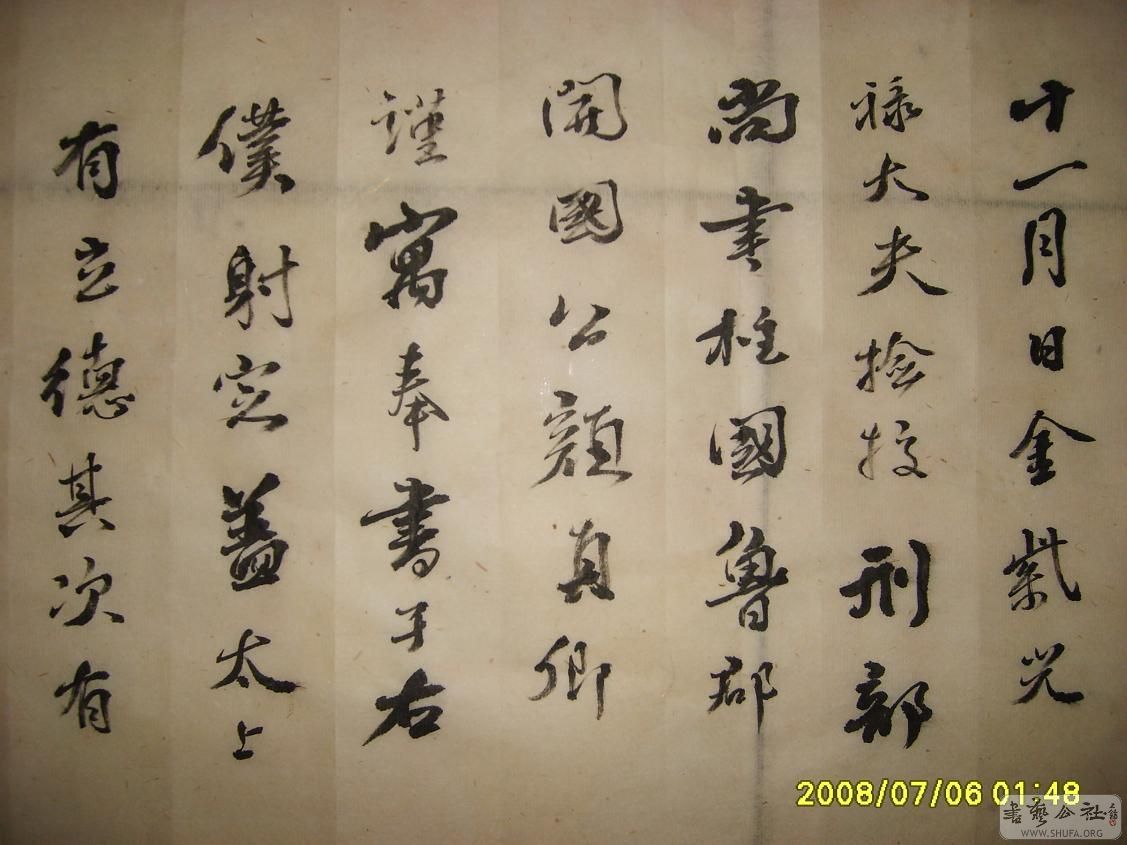 十一月日金紫光
禄大夫撿挍刑部
尚書柱國魯郡
開國公顏真卿
謹寓奉書于右
僕射定蓋太上
有立德其次有
2008/07/06 01:48
書藝公社
WWW.SHUFA.ORG